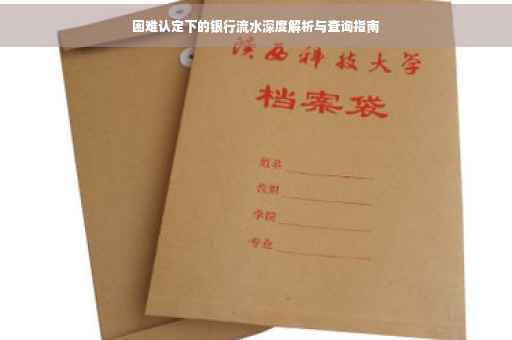 困难认定下的银行流水深度解析与查询指南
陕西科技大学
档案袋
姓名
性别
学院
专业